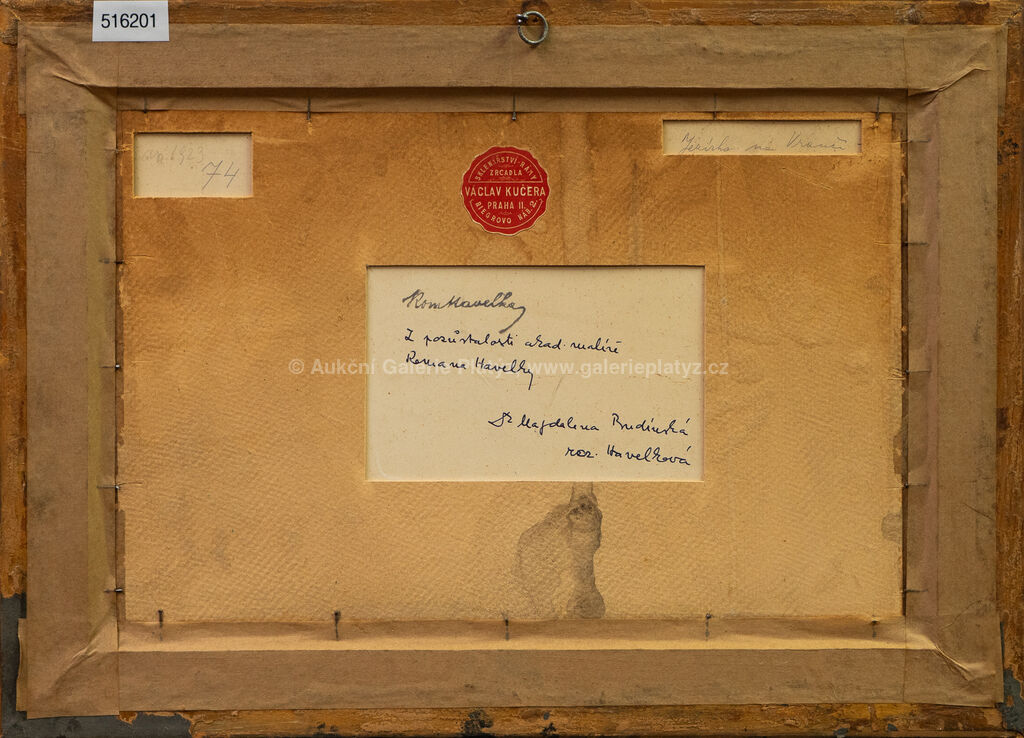 516201
1923
74
SKLENÁŘSTVÍ-RÁMY
ZRCADLA
VÁCLAV KUČERA
PRAHA II.
RIEGROVO NÁB. 2
na
RomHavelka
Z pozůstalosti akad. malíře
Romana Havelky
© Aukční Galerie www.galerieplatyz.cz
Dr Magdalena Brudínská
roz. Havelková